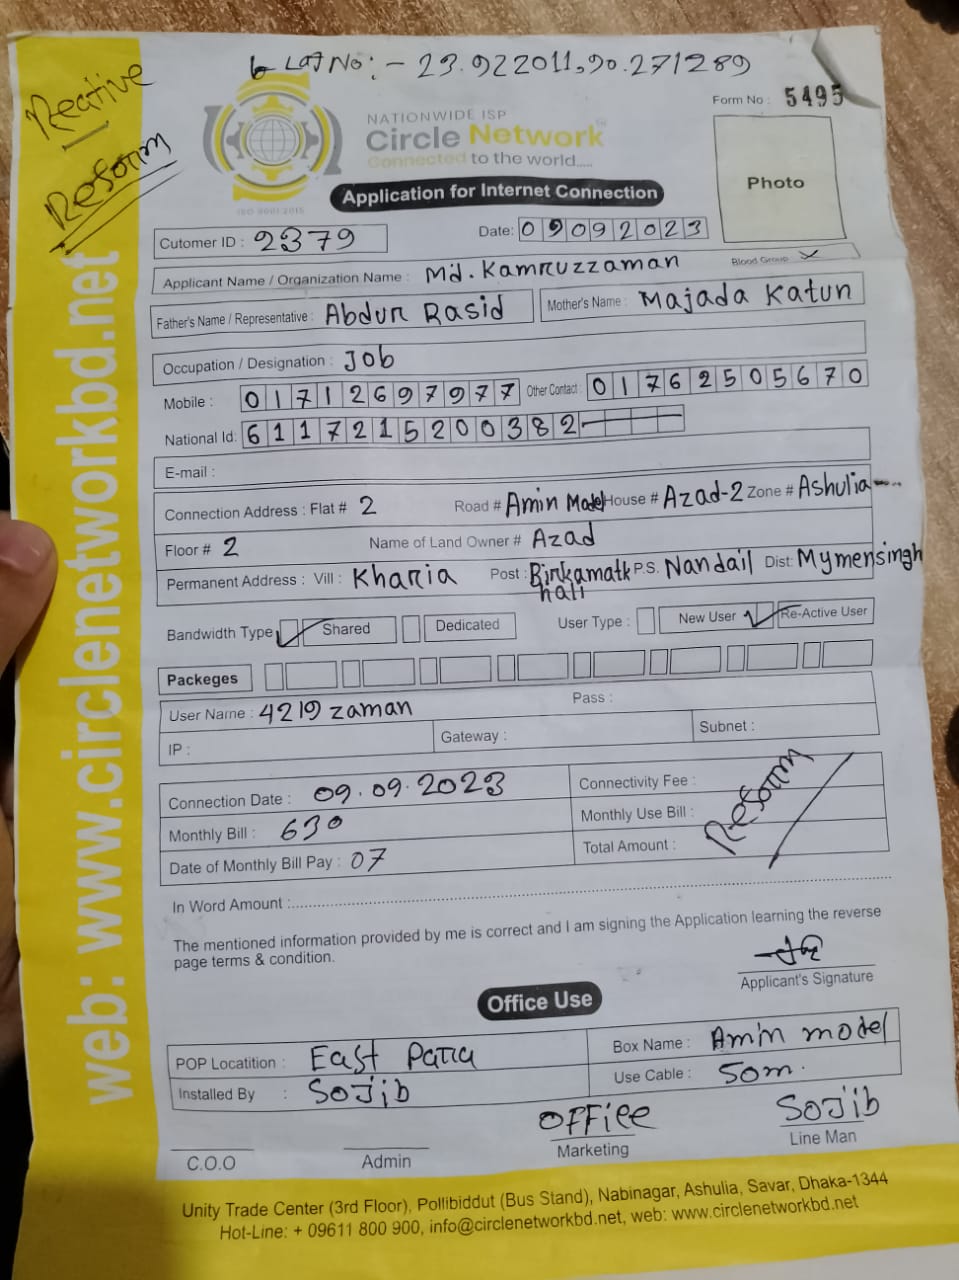 Lat No:- 23.922011,90.271289
Reative
Reform
NATIONWIDE ISP
Circle Network
Connected to the world.....
ISO 9001:2015
Form No : 5495
Photo
Application for Internet Connection
Cutomer ID : 2379
Date: 09092023
Applicant Name / Organization Name : Md. Kamruzzaman
Blood Group
Father's Name / Representative : Abdur Rasid
Mother's Name : Majada Katun
Occupation / Designation : Job
Mobile : 01712697977 Other Contact : 01762505670
National Id: 6117215200382
E-mail :
Connection Address : Flat # 2 Road # Amin Model House # Azad-2 Zone # Ashulia
Floor # 2 Name of Land Owner # Azad
Permanent Address : Vill : Kharia Post : Birkamatkhali P.S. Nandail Dist: Mymensingh
Bandwidth Type Shared Dedicated User Type : New User Re-Active User
Packeges
User Name : 4219 zaman Pass :
IP : Gateway : Subnet :
Connection Date : 09.09.2023 Connectivity Fee :
Monthly Bill : 630 Monthly Use Bill :
Date of Monthly Bill Pay : 07 Total Amount :
Reform
In Word Amount :
The mentioned information provided by me is correct and I am signing the Application learning the reverse
page terms & condition.
Applicant's Signature
Office Use
POP Locatition : East Para Box Name : Amin model
Installed By : Sojib Use Cable : 50m.
Office Sojib
C.O.O Admin Marketing Line Man
Unity Trade Center (3rd Floor), Pollibiddut (Bus Stand), Nabinagar, Ashulia, Savar, Dhaka-1344
Hot-Line: + 09611 800 900, info@circlenetworkbd.net, web: www.circlenetworkbd.net
web: www.circlenetworkbd.net